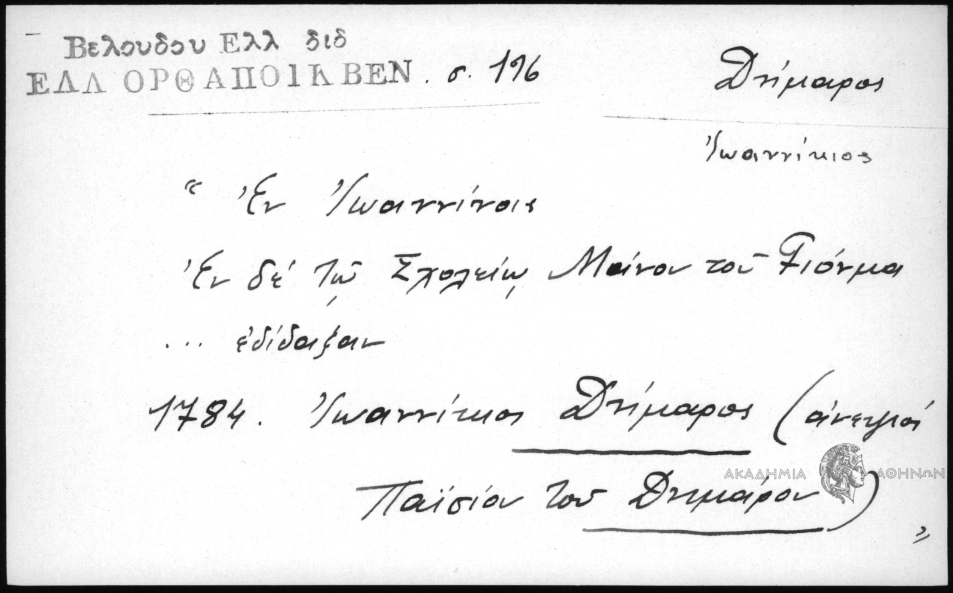 Βελουδου Ελλ διδ
ΕΛΛ ΟΡΘ ΑΠΟΙΚ ΒΕΝ . σ. 196
Δημαρος
Ἰωαννίκιος
" Ἐν Ἰωαννίνοις
Ἐν δέ τῷ Σχολείῳ Μάνου τοῦ Γιόνμα
... ἐδίδαξαν
1784. Ἰωαννίκιος Δημαρος (ἀνεψιός
Παϊσίου τοῦ Δημάρου) "
ΑΚΑΔΗΜΙΑ ΑΘΗΝΩΝ